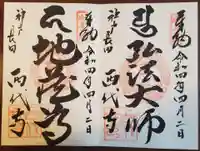 奉拝 令和四年四月二日
弘法大師
神戸長田
西代寺
奉拝 令和四年四月二日
地蔵尊
神戸長田
西代寺